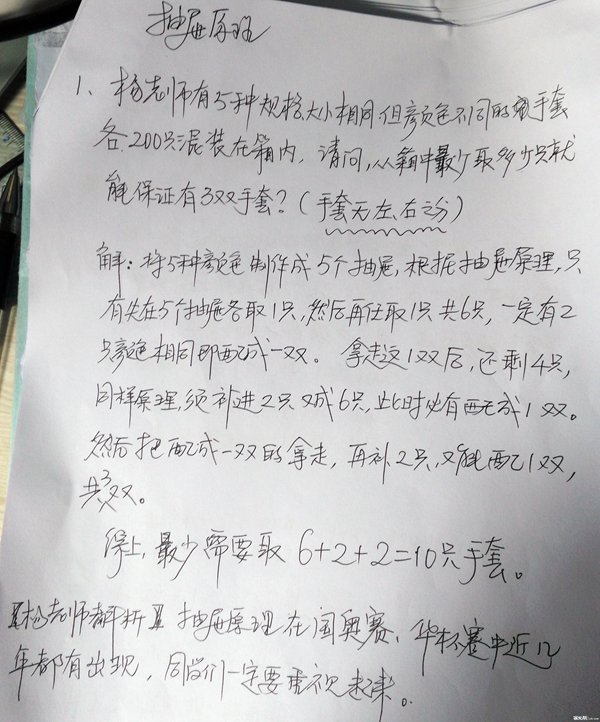 抽屉原理
1、杨老师有5种规格大小相同但颜色不同的手套
各200只混装在箱内,请问,从箱中最少取多少只就
能保证有3双手套?(手套无左、右之分)
解:将5种颜色制作成5个抽屉,根据抽屉原理,只
有先在5个抽屉各取1只,然后再任取1只共6只,一定有2
只颜色相同即配成一双。拿走这1双后,还剩4只,
同样原理,须补进2只又成6只,此时必有配成1双。
然后把配成一双的拿走,再补2只,又能配1双,
共3双。
综上,最少需要取6+2+2=10只手套。
【杨老师解析】抽屉原理在国奥赛、华杯赛中近几
年都有出现,同学们一定要重视起来。